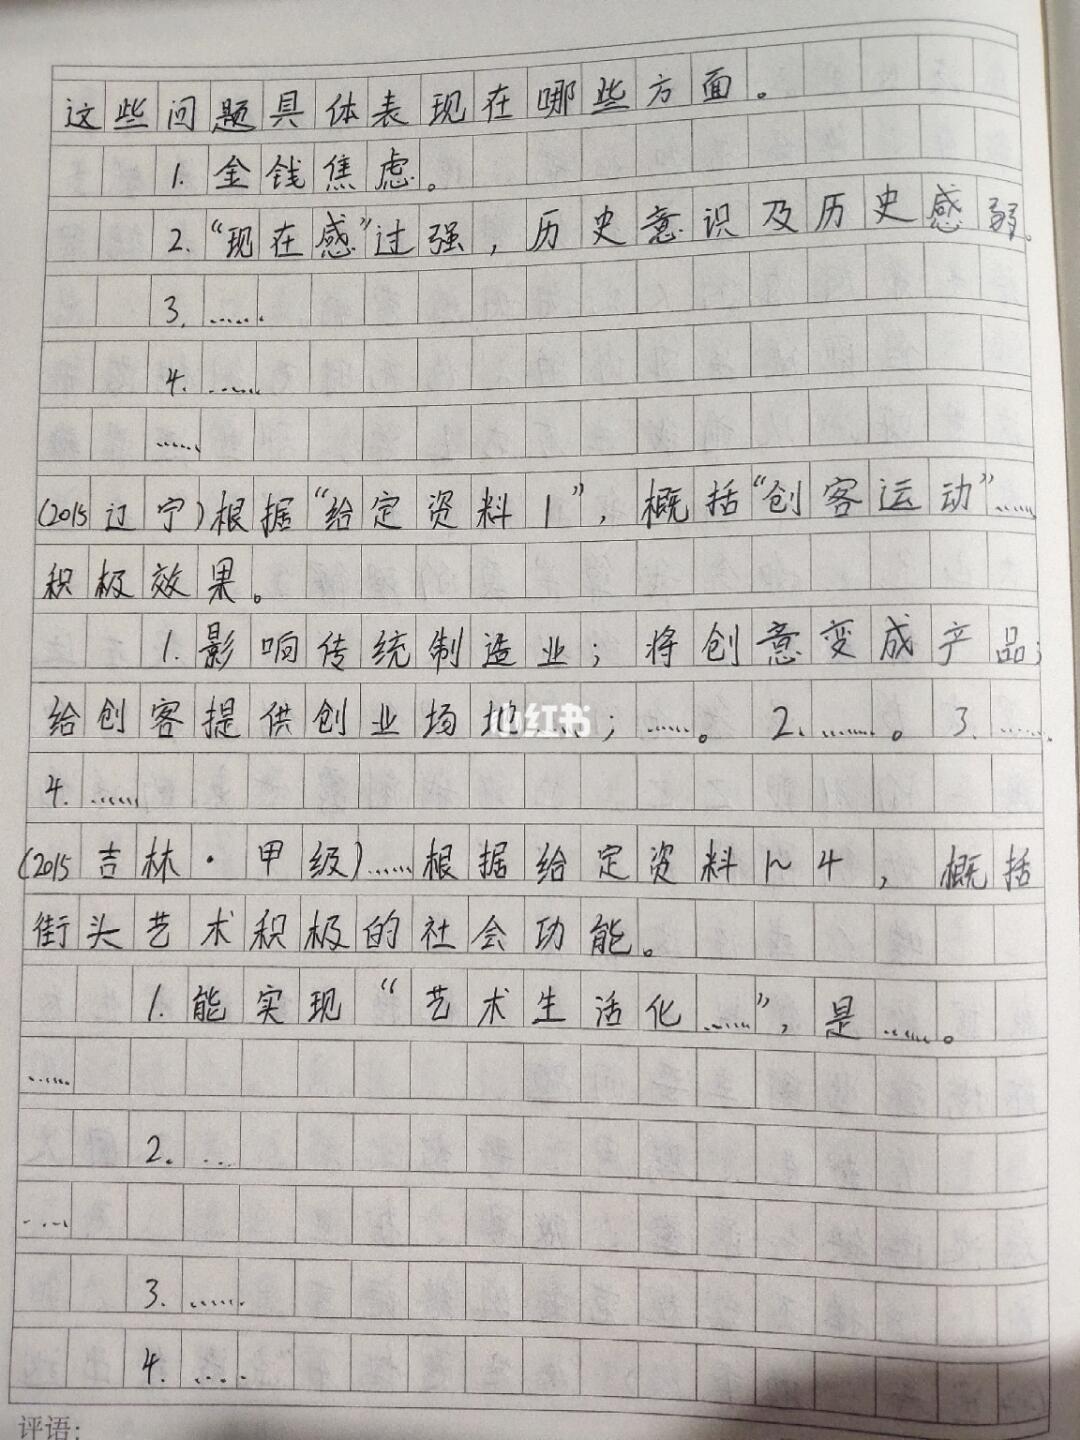 这些问题具体表现在哪些方面。
1. 金钱焦虑。
2. “现在感”过强，历史意识及历史感弱。
3. ……
4. ……
……
(2015辽宁)根据“给定资料1”，概括“创客运动”……
积极效果。
1. 影响传统制造业；将创意变成产品；
给创客提供创业场地……；……。 2. ……。 3. ……
4. ……
(2015吉林·甲级)……根据给定资料1~4，概括
街头艺术积极的社会功能。
1. 能实现“艺术生活化……”，是……。
……
2. …
……
3. ……
4. ……
评语：
小红书